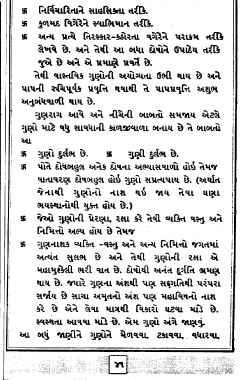 卐 નિર્વિચારિતાને સાહસિકતા તરીકે.
卐 કુળમદ વિગેરેને સ્વાભિમાન તરીકે.
卐 અન્ય પ્રત્યે તિરસ્કાર-કઠોરતા વગેરેને પરાક્રમ તરીકે
લેખવે છે. અને તેથી આ બધા દોષોને ઉપાદેય તરીકે
જુએ છે અને એ પ્રમાણે પ્રવર્તે છે.
તેથી વાસ્તવિક ગુણોની અયોગ્યતા ઉભી થાય છે અને
પાપની રુચિપૂર્વક પ્રવૃત્તિ થવાથી તે પાપપ્રવૃત્તિ અશુભ
અનુબંધવાળી થાય છે.
ગુણરાગ આવે અને નીચેની બાબતો સમજાય એટલે
ગુણો માટે વધુ સાવધાની કાળજીવાળા બનાય છે તે બાબતો
આ
卐 ગુણો દુર્લભ છે. 卐 ગુણી દુર્લભ છે.
卐 પોતે દોષબહુલ અનેક દોષના અભ્યાસવાળો હોઈ તેમજ
વાતાવરણ દોષબહુલ હોઈ ગુણો સપ્રત્યપાય છે. (અર્થાત
જેનાથી ગુણોનો નાશ થઇ જાય તેવા ઘણા
ભયસ્થાનોથી યુક્ત હોય છે.)
卐 જેઓ ગુણોની પ્રેરણા, રક્ષા કરે તેવી વ્યક્તિ વસ્તુ અને
નિમિત્તો અલ્પ હોય છે તેમજ
卐 ગુણનાશક વ્યક્તિ -વસ્તુ અને અન્ય નિમિત્તો જગતમાં
અત્યંત સુલભ છે અને તેથી ગુણોની રક્ષા એ
મહામુશ્કેલી ભરી વાત છે. દોષોથી અનંત દુર્ગતિ ભ્રમણ
થાય છે. જ્યારે ગુણના અંશથી પણ સદ્ગતિથી પરંપરા
સર્જાય છે સાચા અમૃતનો અંશ પણ મહાવિષનો નાશ
કરે છે અને લેવા માત્રથી વિકારો ઘટવા માંડે છે.
સ્વસ્થતા આવવા માંડે છે. એમ ગુણો અંગે જાણવું.
આ બધું જાણીને ગુણોને મેળવવા, ટકાવવા, વધારવા,